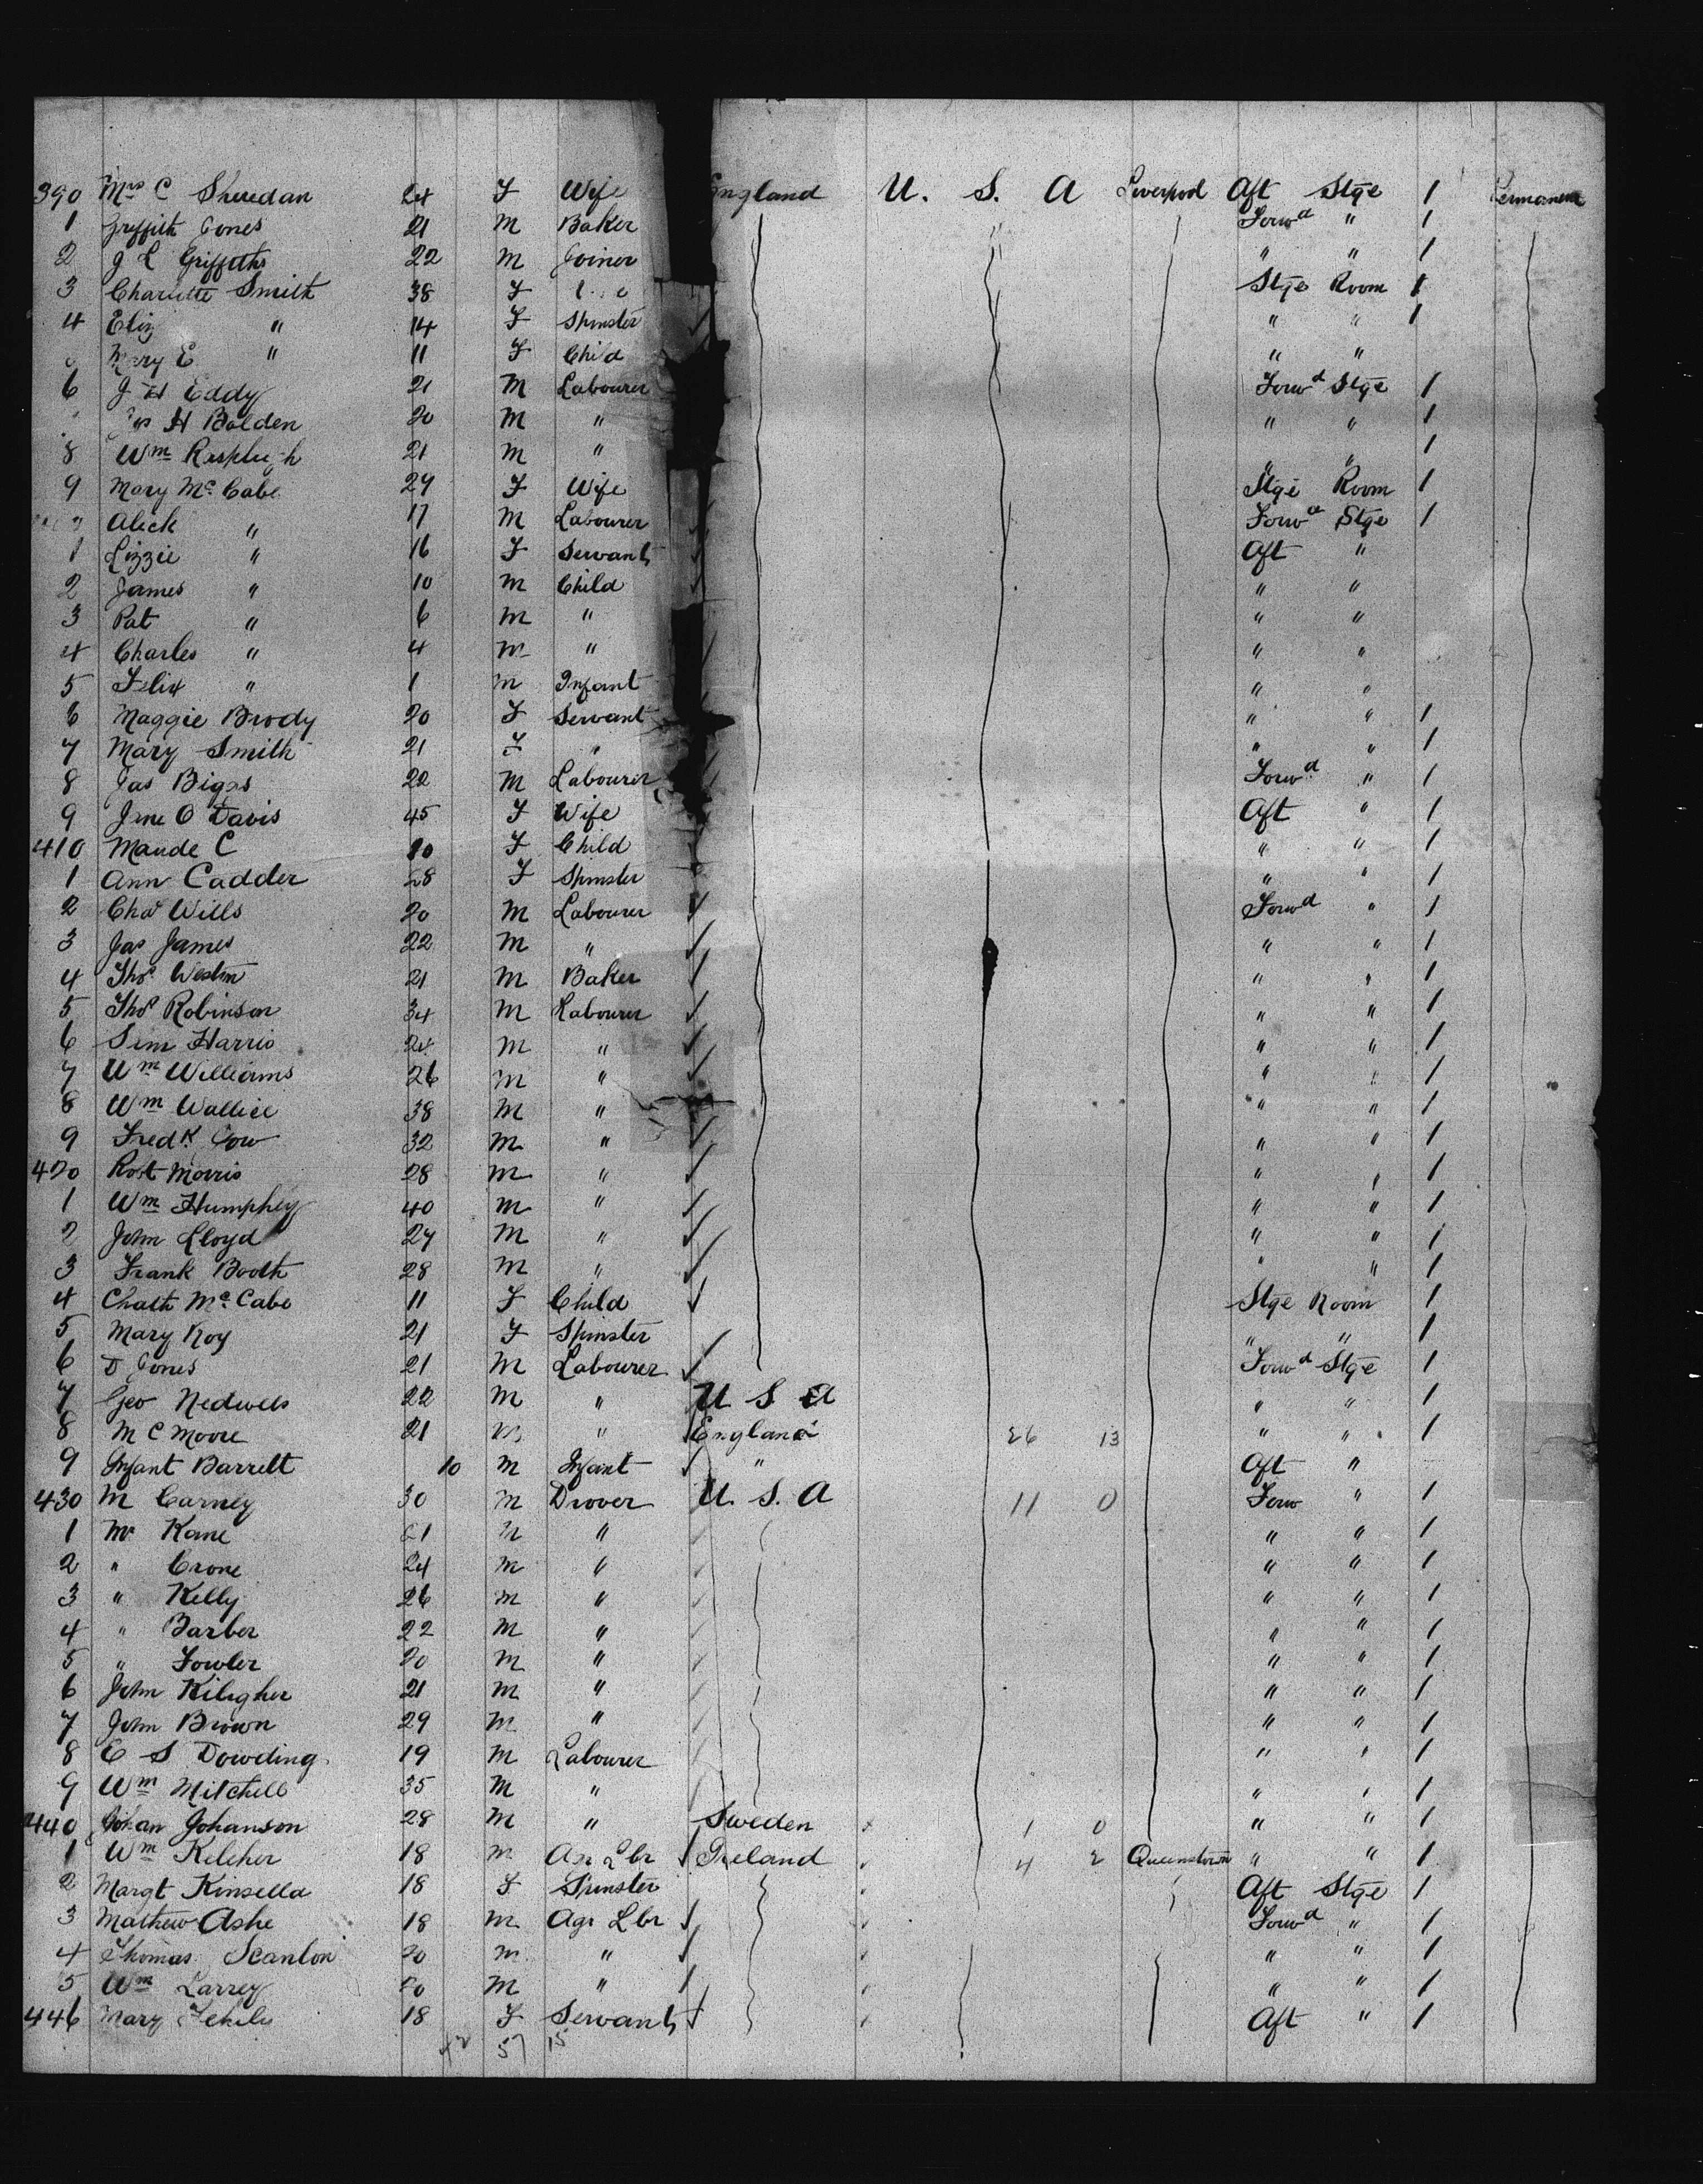 390 Mrs C Sheredan 24 F Wife England U. S. A Liverpool Aft Stge 1 Permanent
1 Griffith Jones 21 M Baker Forwd " 1
2 J L Griffiths 22 M Joiner " " 1
3 Charlotte Smith 38 F Stge Room 1
4 Eliz " 14 F Spinster " " 1
Mary E " 11 F Child " "
6 J H Eddy 21 M Labourer Forwd Stge 1
H Bolden 20 M " " " 1
8 Wm 21 M " " " 1
9 Mary Mc Cabe 29 F Wife Stge Room 1
Alick " 17 M Labourer Forwd Stge 1
1 Lizzie " 16 F Servant Aft "
2 James " 10 M Child " "
3 Pat " 6 M " " "
4 Charles " 4 M " " "
5 Felix " 1 M Infant " "
6 Maggie Brody 20 F Servant " " 1
7 Mary Smith 21 F " " " 1
8 Jas Biggs 22 M Labourer Forwd " 1
9 Jane O Davis 45 F Wife Aft " 1
410 Maude C 10 F Child " " 1
1 Ann Cadder 28 F Spinster " " 1
2 Chas Wills 20 M Labourer Forwd " 1
3 Jas James 22 M " " " 1
4 Thos Weston 21 M Baker " " 1
5 Thos Robinson 34 M Labourer " " 1
6 Sim Harris 24 M " " " 1
7 Wm Williams 26 M " " " 1
8 Wm Wallice 38 M " " " 1
9 Fredk Cow 32 M " " " 1
420 Robt Morris 28 M " " " 1
1 Wm Humphey 40 M " " " 1
2 John Lloyd 24 M " " " 1
3 Frank Booth 28 M " " " 1
4 Chath Mc Cabe 11 F Child Stge Room 1
5 Mary Roy 21 F Spinster " " 1
6 D Jones 21 M Labourer Forwd Stge 1
7 Geo Nedwels 22 M " U S A " " 1
8 M C Moore 21 M " England 26 13 " " 1
9 Infant Barrett 10 M Infant " Aft "
430 M Carney 30 M Drover U. S. A 11 0 Forw " 1
1 Mr Kane 21 M " " " 1
2 " Crone 24 M " " " 1
3 " Kelly 26 M " " " 1
4 " Barber 22 M " " " 1
5 " Fowler 20 M " " " 1
6 John Kiligher 21 M " " " 1
7 John Brown 29 M " " " 1
8 E S Dowding 19 M Labourer " " 1
9 Wm Mitchell 35 M " " " 1
440 Johan Johanson 28 M " Sweden 1 0 " " 1
1 Wm Keleher 18 M Agr Lbr Ireland 4 2 Queenstown " " 1
2 Margt Kinsella 18 F Spinster Aft Stge 1
3 Mathew Ashe 18 M Agr Lbr Forwd " 1
4 Thomas Scanlon 20 M " " " 1
5 Wm Larrey 20 M " " " 1
446 Mary 18 F Servant Aft " 1
57 15